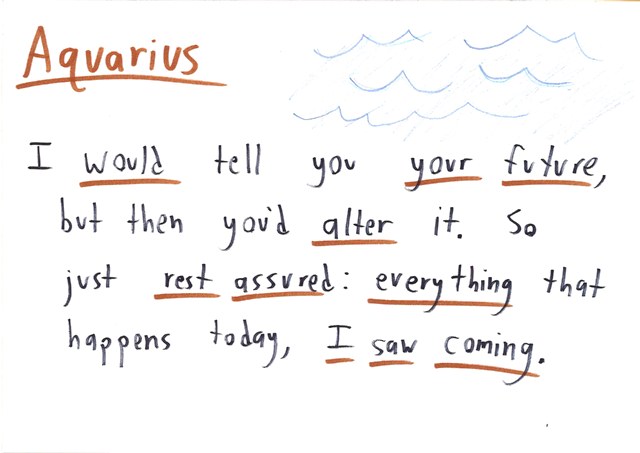 Aquarius
I would tell you your future,
but then you'd alter it. So
just rest assured: everything that
happens today, I saw coming.